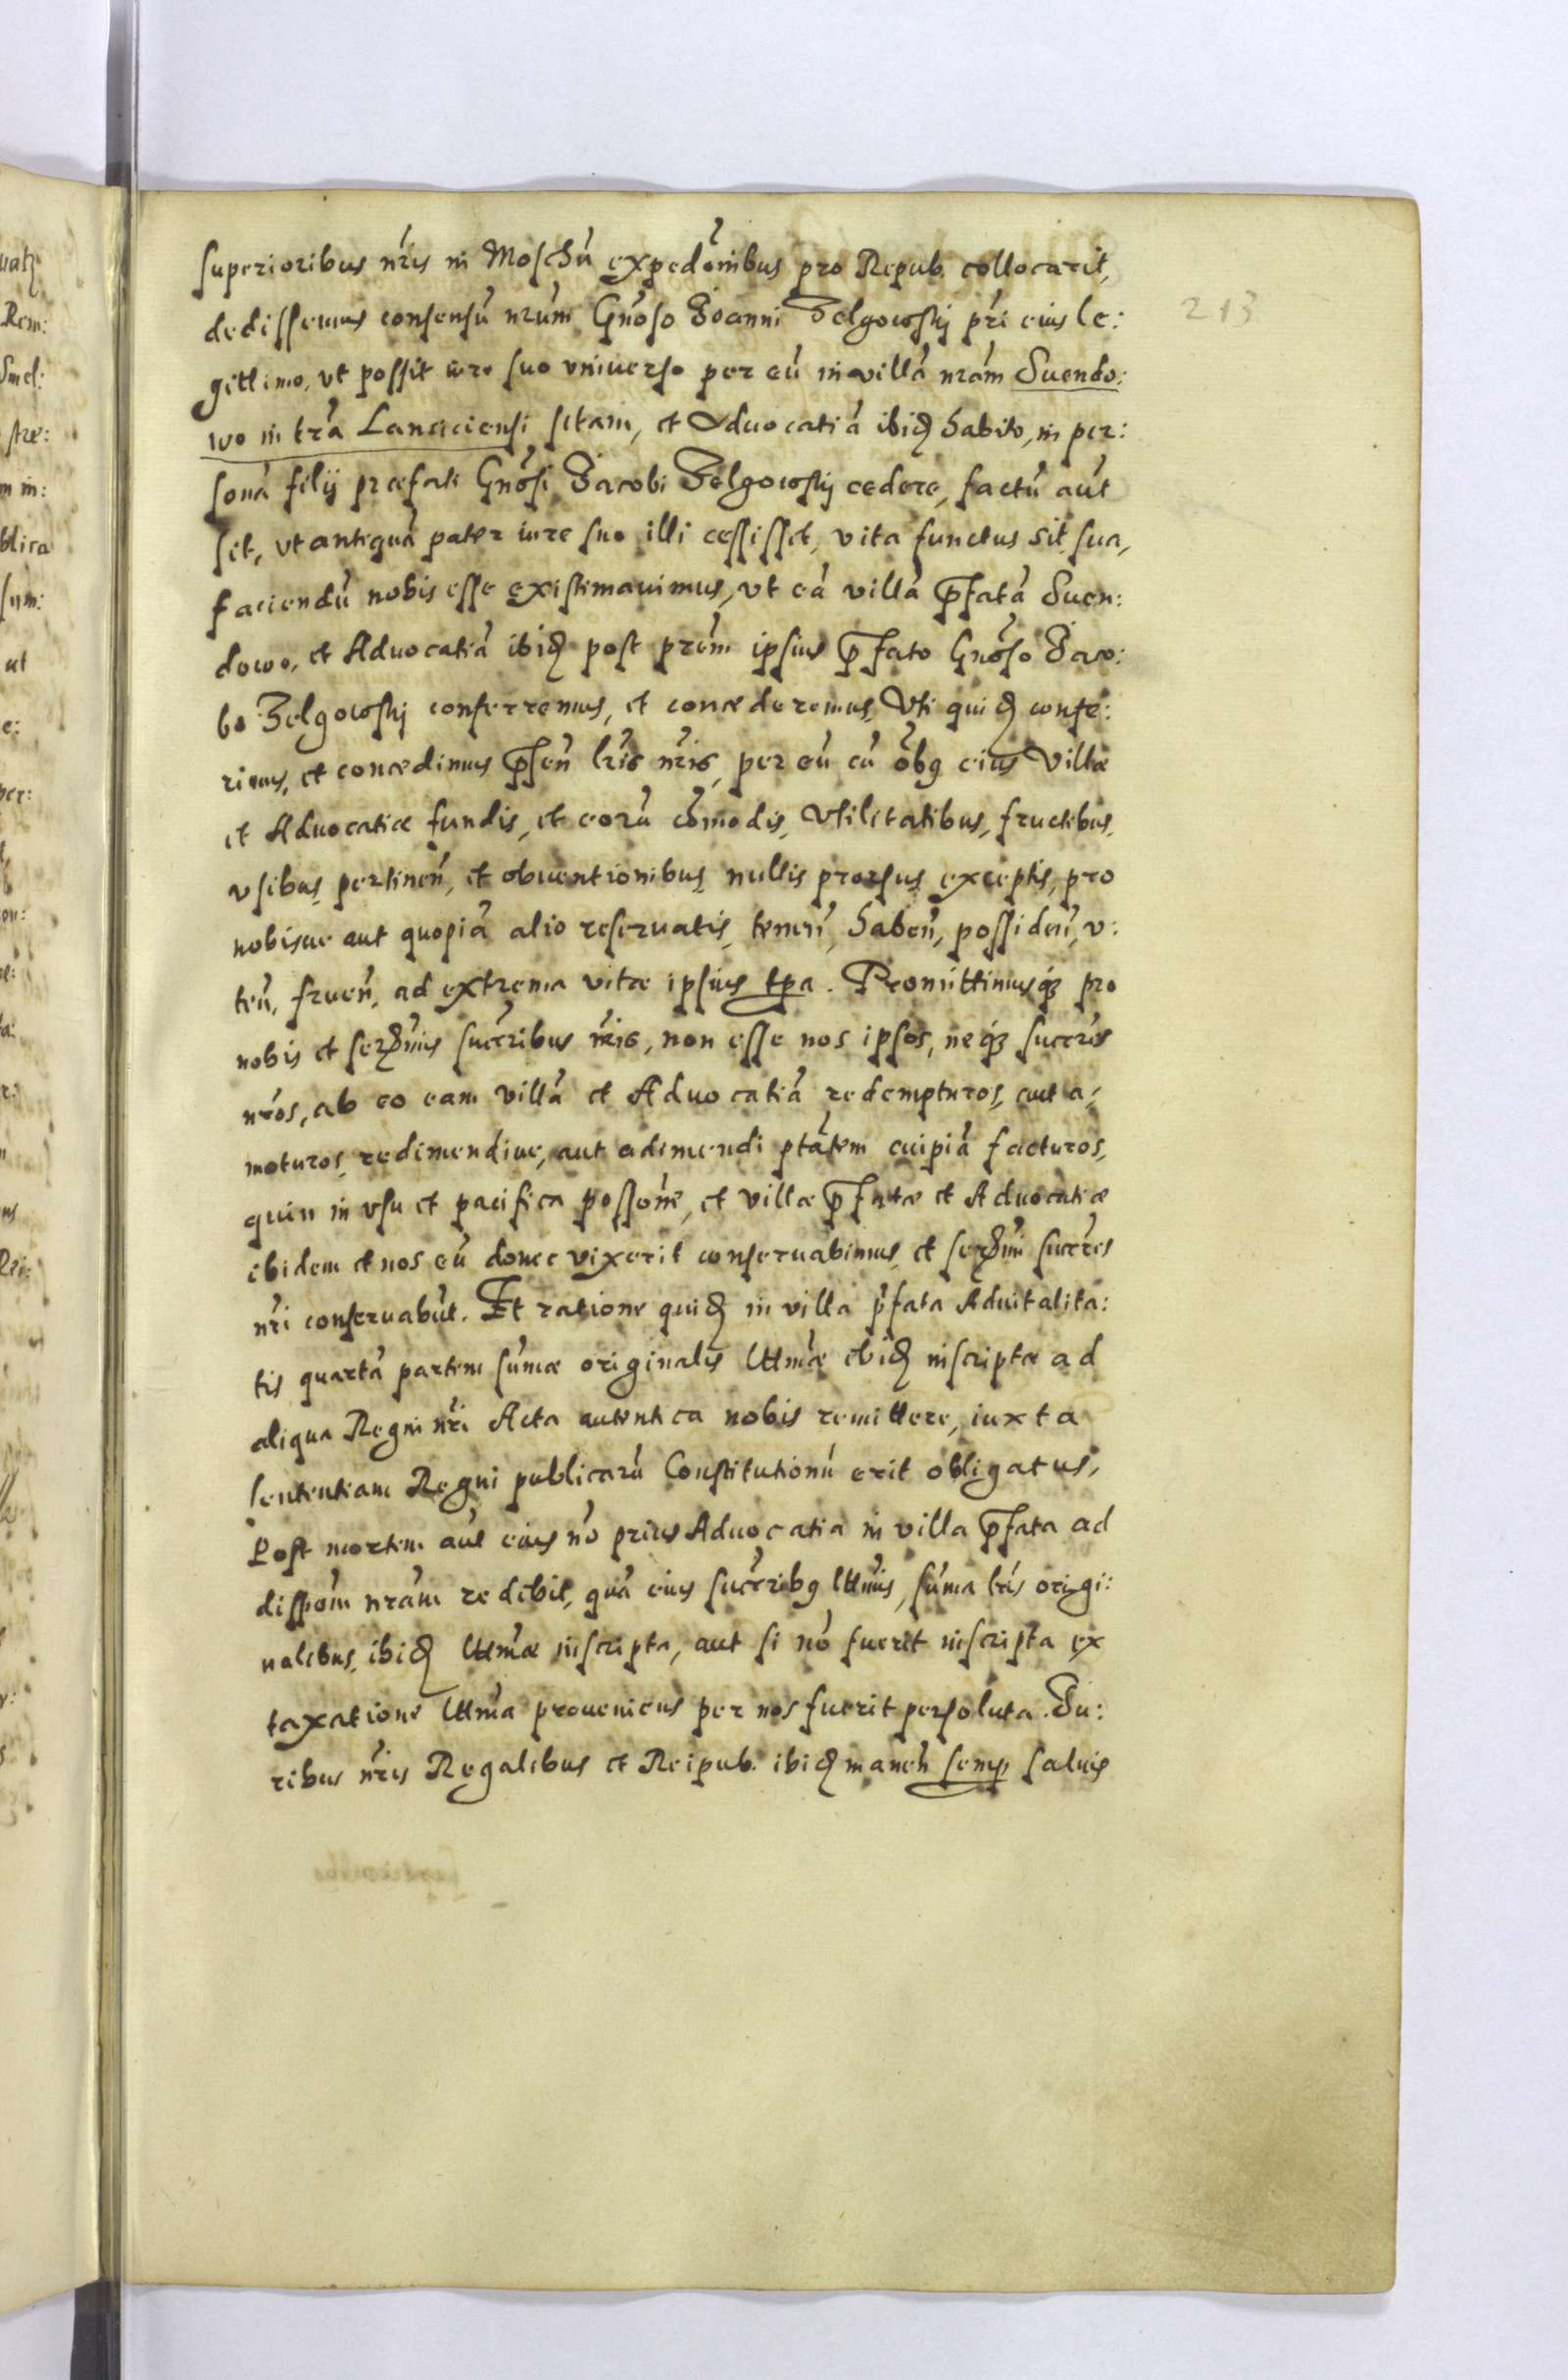 superioribus nr̃is in Moschũ expedõnibus pro Repub. collocarit,
dedissemus consensũ nrũm Gñoso Joanni Zelgowskj pr̃i eius le:
gittimo, ut possit iure suo vniuerso per eũ in villã nrãm Suendo:
wo in tr̃a Lanciciensi sitam, et Aduocatiã ibid habito, in per:
sonã filij præfati Gñosi Jacobi Zelgowskj cedere, factũ aũt
sit, ut antequã pater iure suo illi cessisset, vita functus sit sua,
faciendũ nobis esse existimauimus, ut eã villã p̃fatã Suen:
dowo, et Aduocatiã ibid post prẽm ipsius p̃fato Gñoso Jaco:
bo Zelgowskj conferremus, et concederemus, Vti quid confe:
rimus, et concedimus p̃señ lr̃is nr̃is, per eũ cũ õbq eius Villæ
et Aduocatiæ fundis, et eorũ cõmodis, Vtilitatibus, fructibus,
vsibus, pertineñ, et obuentionibus, nullis prorsus exceptis, pro
nobisue aut quopiã alio reseruatis, teneñ, habeñ, possideñ, v:
teñ, frueñ, ad extrema vitæ ipsius tpa. Promittimusq3 pro
nobis et serẽmis succribus nr̃is, non esse nos ipsos, neq3 succr̃es
nr̃os, ab eo eam villã et Aduocatiã redempturos, aut a:
moturos, redimendiue, aut adimendi ptãtem cuipiã facturos,
quin in vsu et pacifica possõne, et villæ p̃fatæ et Aduocatiæ
ibidem et nos eũ donec vixerit conseruabimus, et serẽmi succr̃es
nr̃i conseruabũt. Et ratione quid in villa p̃fata Aduitalita:
tis quartã partem sũmæ originalis Ultmæ ibid inscriptæ ad
aliqua Regni nr̃i Acta autentica nobis remittere, iuxta
sententiam Regni publicarũ Constitutionũ erit obligatus,
Post mortem aũt eius nõ prius Aduocatia in villa p̃fata ad
dispõm nrãm redibit, quã eius succribq lttmis, sũma lr̃is origi:
nalibus, ibid lttmæ inscripta, aut si nõ fuerit inscripta ex
taxatione lttma proueniens per nos fuerit persoluta. Ju:
ribus nr̃is Regalibus et Reipub. ibid maneñ semp saluis
213